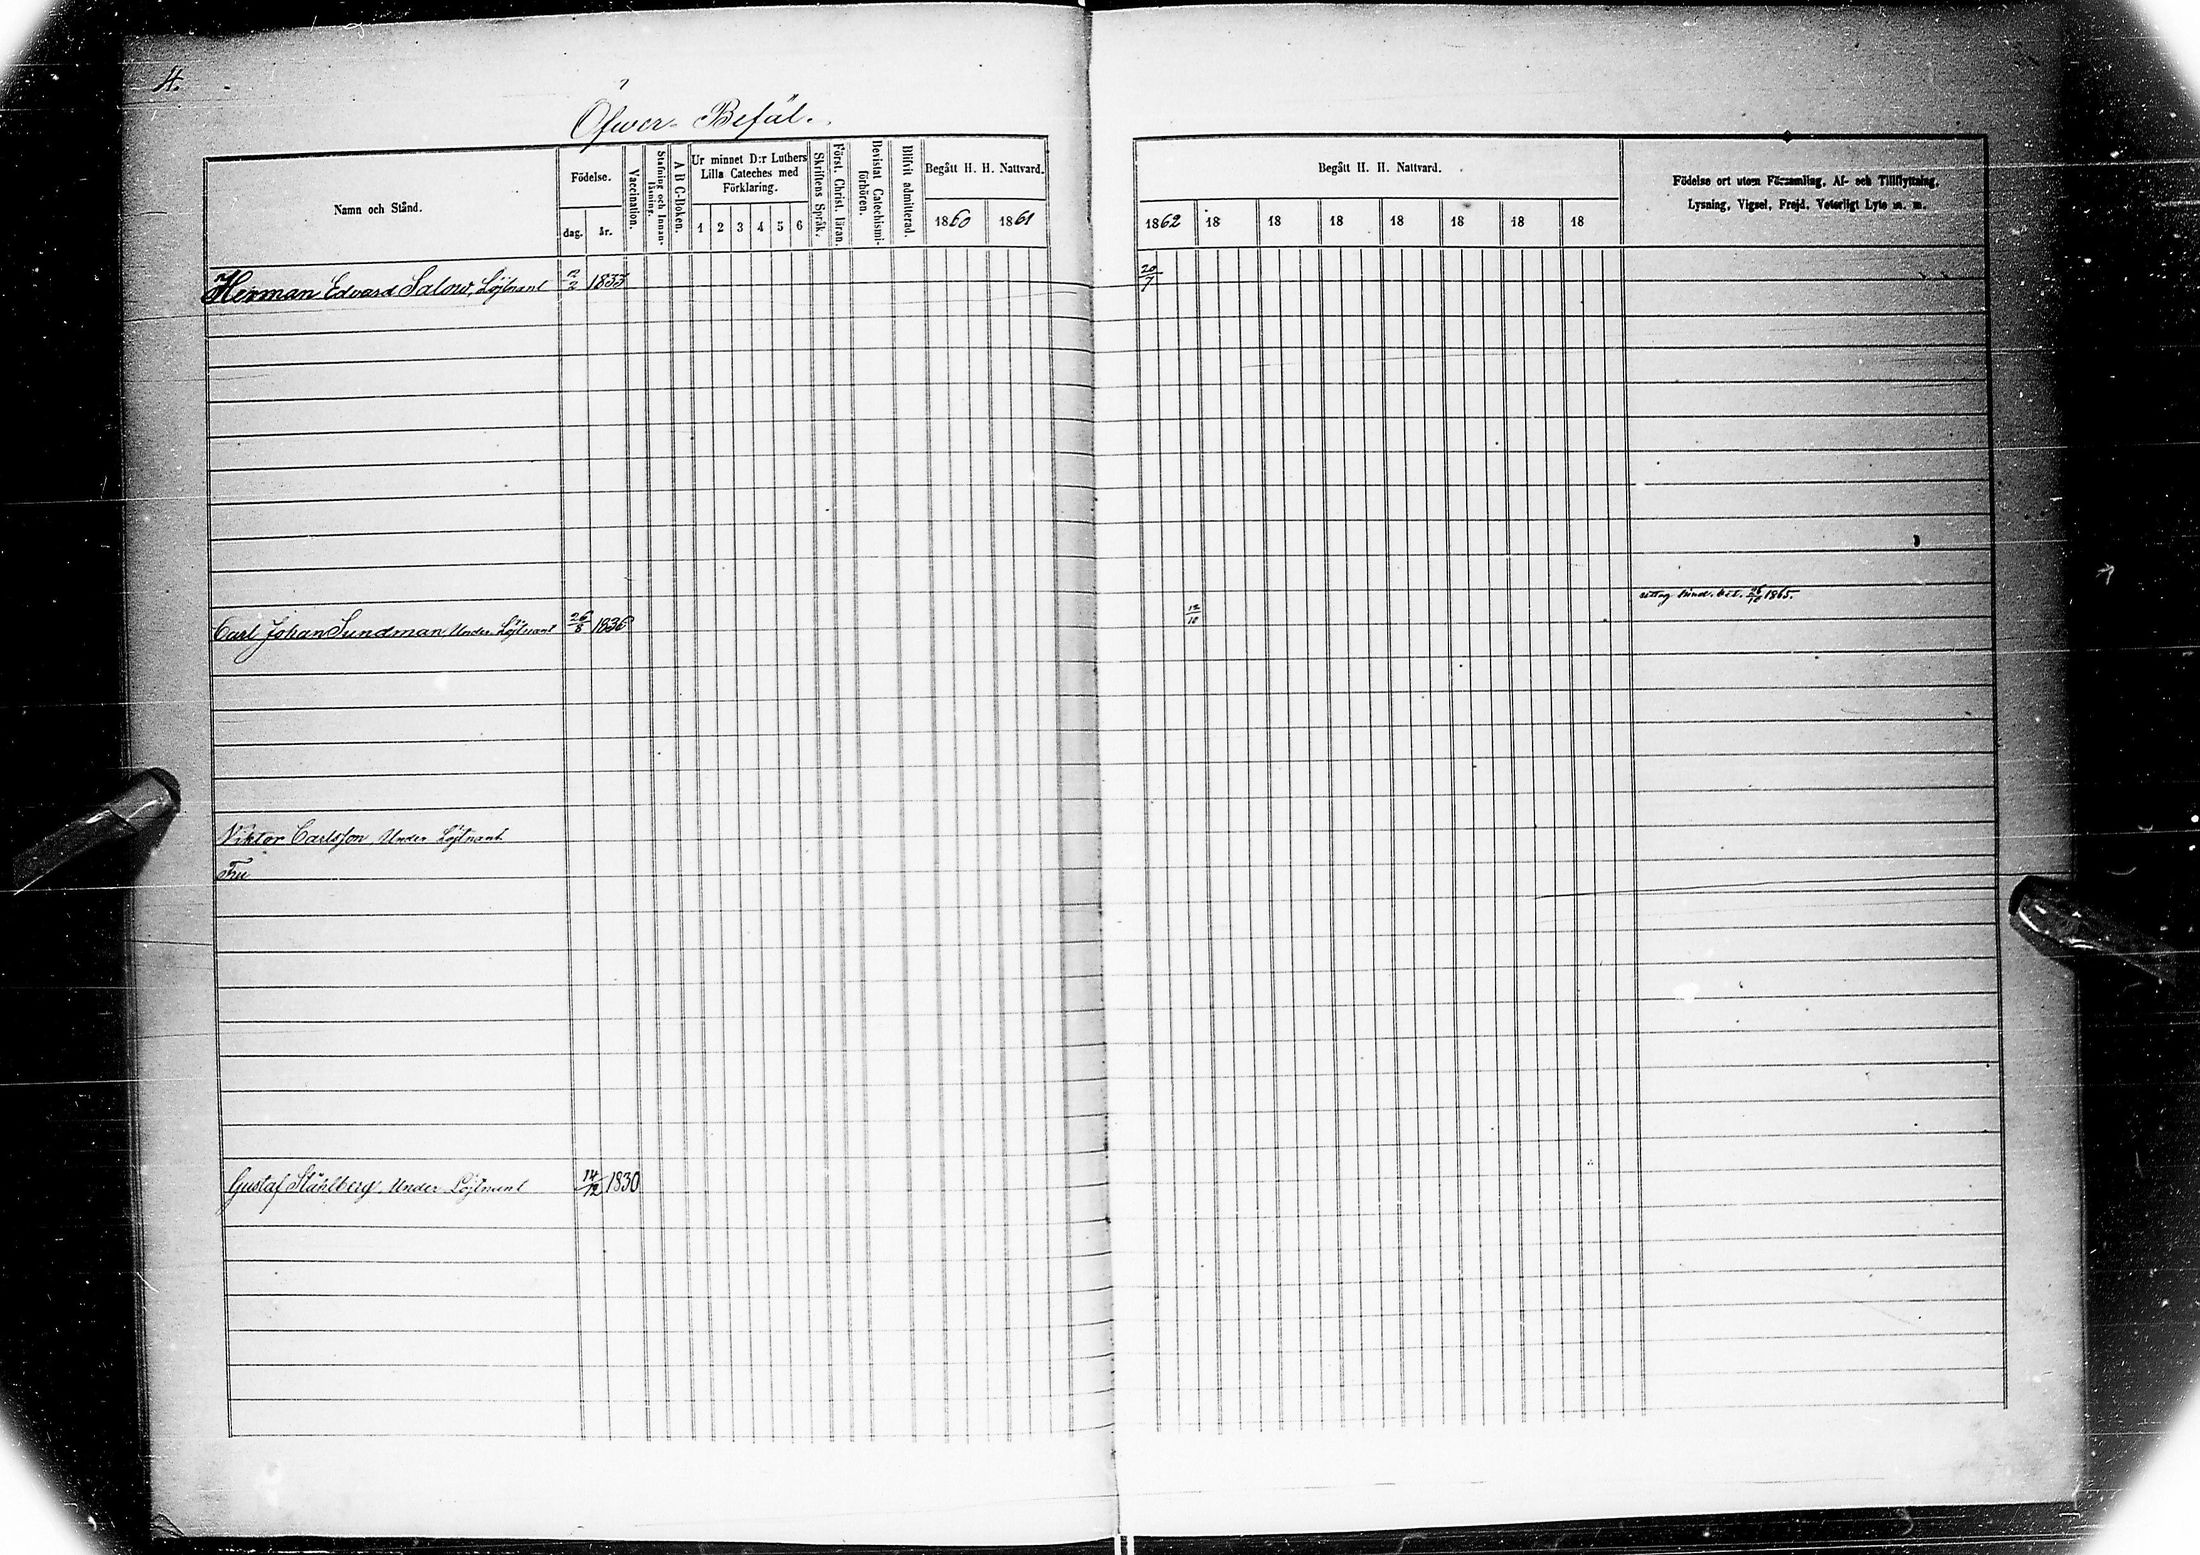 4.
Öfwer-Befäl.
Namn och Stånd.
Födelse.
dag.
år.
Vaccination.
Stafning och Innan-
läsning.
A B C-Boken.
Ur minnet D:r Luthers
Lilla Cateches med
Förklaring.
1 2 3 4 5 6
Skriftens Språk.
Först. Christ. läran.
Bevistat Catechismi-
förhören.
Blifvit admitterad.
Begått H. H. Nattvard.
1860 1861
Begått H. H. Nattvard.
1862 18 18 18 18 18 18 18
Födelse ort utom Församling, Af- och Tillflyttning,
Lysning, Vigsel, Frejd, Veterligt Lyte m. m.
Herman Edvard Salow, Löjtnant 2/2 1833 20/7
1865.
Carl Johan Sundman, Under Löjtnant 26/8 1836 12/10
Viktor Carlsson, Under Löjtnant
Fru
Gustaf Ståhlberg, Under Löjtnant 14/12 1830